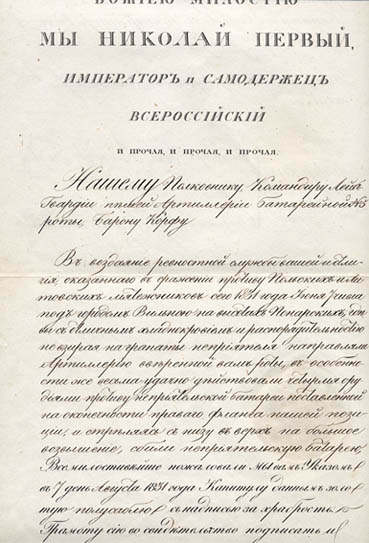 БОЖІЕЮ МИЛОСТІЮ
МЫ НИКОЛАЙ ПЕРВЫЙ,
ИМПЕРАТОРЪ и САМОДЕРЖЕЦЪ
ВСЕРОССІЙСКІЙ
И ПРОЧАЯ, И ПРОЧАЯ, И ПРОЧАЯ.
Нашему Полковнику, Командиру Лейбъ
Гвардіи пѣшей Артиллеріи Батарейной №3
роты, Барону Корфу
Въ воздаяніе ревностной службы вашей и отли-
чія, оказаннаго въ сраженіи противу Польскихъ и Ли-
товскихъ мятежниковъ сего 1831 года Іюня 7 числа
подъ городомъ Вильною на высотахъ Понарскихъ, гдѣ
вы съ отличнымъ хладнокровіемъ и распорядительностію
не взирая на гранаты непріятеля направляли
Артиллерію ввѣренной вамъ роты, въ особенно
сти же весьма удачно дѣйствовали четырмя ору
діями противу непріятельской батареи поставленной
на оконечности праваго фланга нашей пози
ціи, и стрѣляя съ низу въ верхъ на большое
возвышеніе, сбили непріятельскую батарею;
Всемилостивѣйше пожаловали Мы вамъ Указомъ
въ 7 день Августа 1831 года Капитулу даннымъ золо
тую полусаблю съ надписью за храбрость.
Грамоту сію во свидѣтельство подписать и